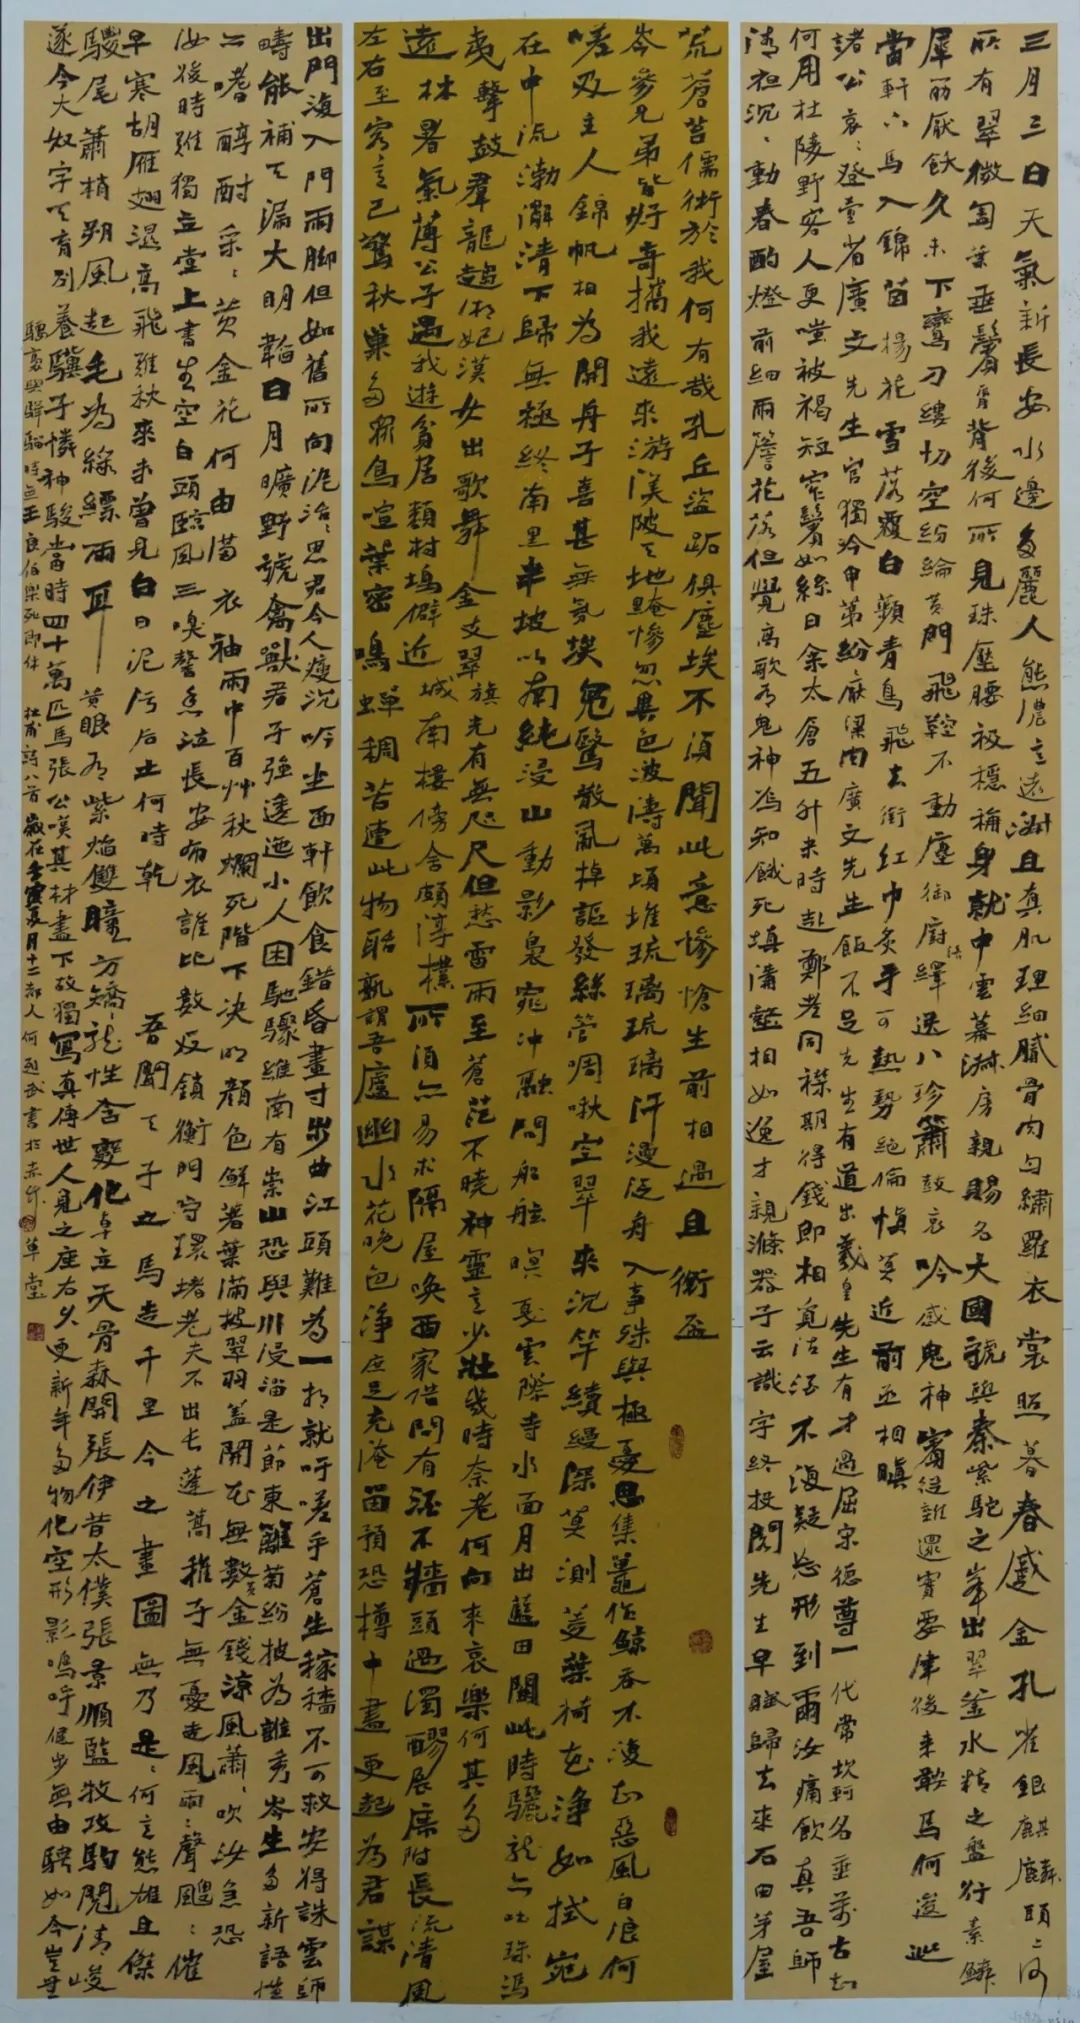 三月三日天氣新長安水邊多麗人態濃意遠淑且真肌理細膩骨肉勻繡羅衣裳照暮春蹙金孔雀銀麒麟頭上何
所有翠微㔩葉垂鬢脣背後何所見珠壓腰衱穩稱身就中雲幕椒房親賜名大國虢與秦紫駝之峯出翠釜水精之盤行素鱗
犀筯厭飫久未下鸞刀縷切空紛綸黃門飛鞚不動塵御廚絡繹送八珍簫鼓哀吟感鬼神賓從雜遝實要津後來鞍馬何逡巡
當軒下馬入錦茵楊花雪落覆白蘋青鳥飛去銜紅巾炙手可熱勢絕倫慎莫近前丞相瞋
諸公衮衮登臺省廣文先生官獨冷甲第紛紛厭粱肉廣文先生飯不足先生有道出羲皇先生有才過屈宋德尊一代常坎軻名垂萬古知
何用杜陵野客人更嗤被褐短窄鬢如絲日糴太倉五升米時赴鄭老同襟期得錢即相覓沽酒不復疑忘形到爾汝痛飲真吾師
清夜沉沉動春酌燈前細雨簷花落但覺高歌有鬼神焉知餓死填溝壑相如逸才親滌器子云識字終投閣先生早賦歸去來石田茅屋
荒蒼苔儒術於我何有哉孔丘盜跖俱塵埃不須聞此意慘愴生前相遇且銜盃
岑參兄弟皆好奇攜我遠來游渼陂天地黤慘忽異色波濤萬頃堆琉璃琉璃汗漫泛舟入事殊興極憂思集鼉作鯨吞不復知惡風白浪何
嗟及主人錦帆相為開舟子喜甚無氛埃鳧鷖散亂棹謳發絲管啁啾空翠來沉竿續縵深莫測菱葉荷花淨如拭宛
在中流渤澥清下歸無極終南黑半陂以南純浸山動影裊窕沖融間船舷暝戛雲際寺水面月出藍田關此時驪龍亦吐珠馮
夷擊鼓羣龍趨湘妃漢女出歌舞金支翠旗光有無咫尺但愁雷雨至蒼茫不曉神靈意少壯幾時奈老何向來哀樂何其多
遠林暑氣薄公子過我遊貧居類村塢僻近城南樓傍舍頗淳樸所須亦易求隔屋喚西家借問有酒不牆頭過濁醪展席俯長流清風
左右至客意已驚秋巢多眾鳥喧葉密鳴蟬稠苦遭此物聒孰謂吾廬幽水花晚色淨庶足充淹留預恐樽中盡更起為君謀
出門復入門雨腳但如舊所向泥活活思君令人瘦沉吟坐西軒飲食錯昏晝寸步曲江頭難為一相就吁嗟乎蒼生稼穡不可救安得誅雲師
疇能補天漏大明韜白月曠野號禽獸君子強逶迤小人困馳驟維南有崇山恐與川浸溜是節東籬菊紛披為誰秀岑生多新語性
亦嗜醇酎采采黃金花何由滿衣袖雨中百艸秋爛死階下決明顏色鮮著葉滿枝翠羽蓋開花無數黃金錢涼風蕭蕭吹汝急恐
汝後時難獨立堂上書生空白頭臨風三嗅馨香泣長安布衣誰比數反鎖衡門守環堵老夫不出長蓬蒿稚子無憂走風雨雨聲颼颼催
早寒胡雁翅濕高飛難秋來未曾見白日泥污后土何時乾 吾聞天子之馬走千里今之畫圖無乃是是何意態雄且傑
騣尾蕭梢朔風起毛為綠縹兩耳黃眼有紫焰雙瞳方矯矯龍性含變化卓立天骨森開張伊昔太僕張景順監牧攻駒閱清峻
遂令大奴字天育別養驥子憐神駿當時四十萬匹馬張公嘆其材盡下故獨寫真傳世人見之座右久更新年多物化空形影嗚呼健步無由騁如今豈無
騕褭與驊騮時無王良伯樂死即休 杜甫詩八首歲在壬寅夏月十二都人何烈武書於草堂